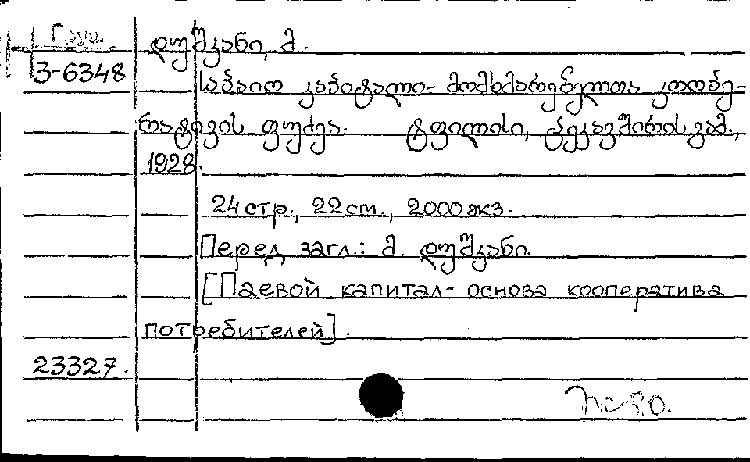 Груз.
3-6348
დუშკანი, მ.
საპაიო კაპიტალი- მომხმარებელთა კოოპე-
რატივის ფუძეა. ტფილისი, ცეკავშირის გამ.,
1928.
24 стр., 22 см., 2000 экз.
Перед загл.: მ. დუშკანი.
[Паевой капитал- основа кооператива
потребителей]
23327.